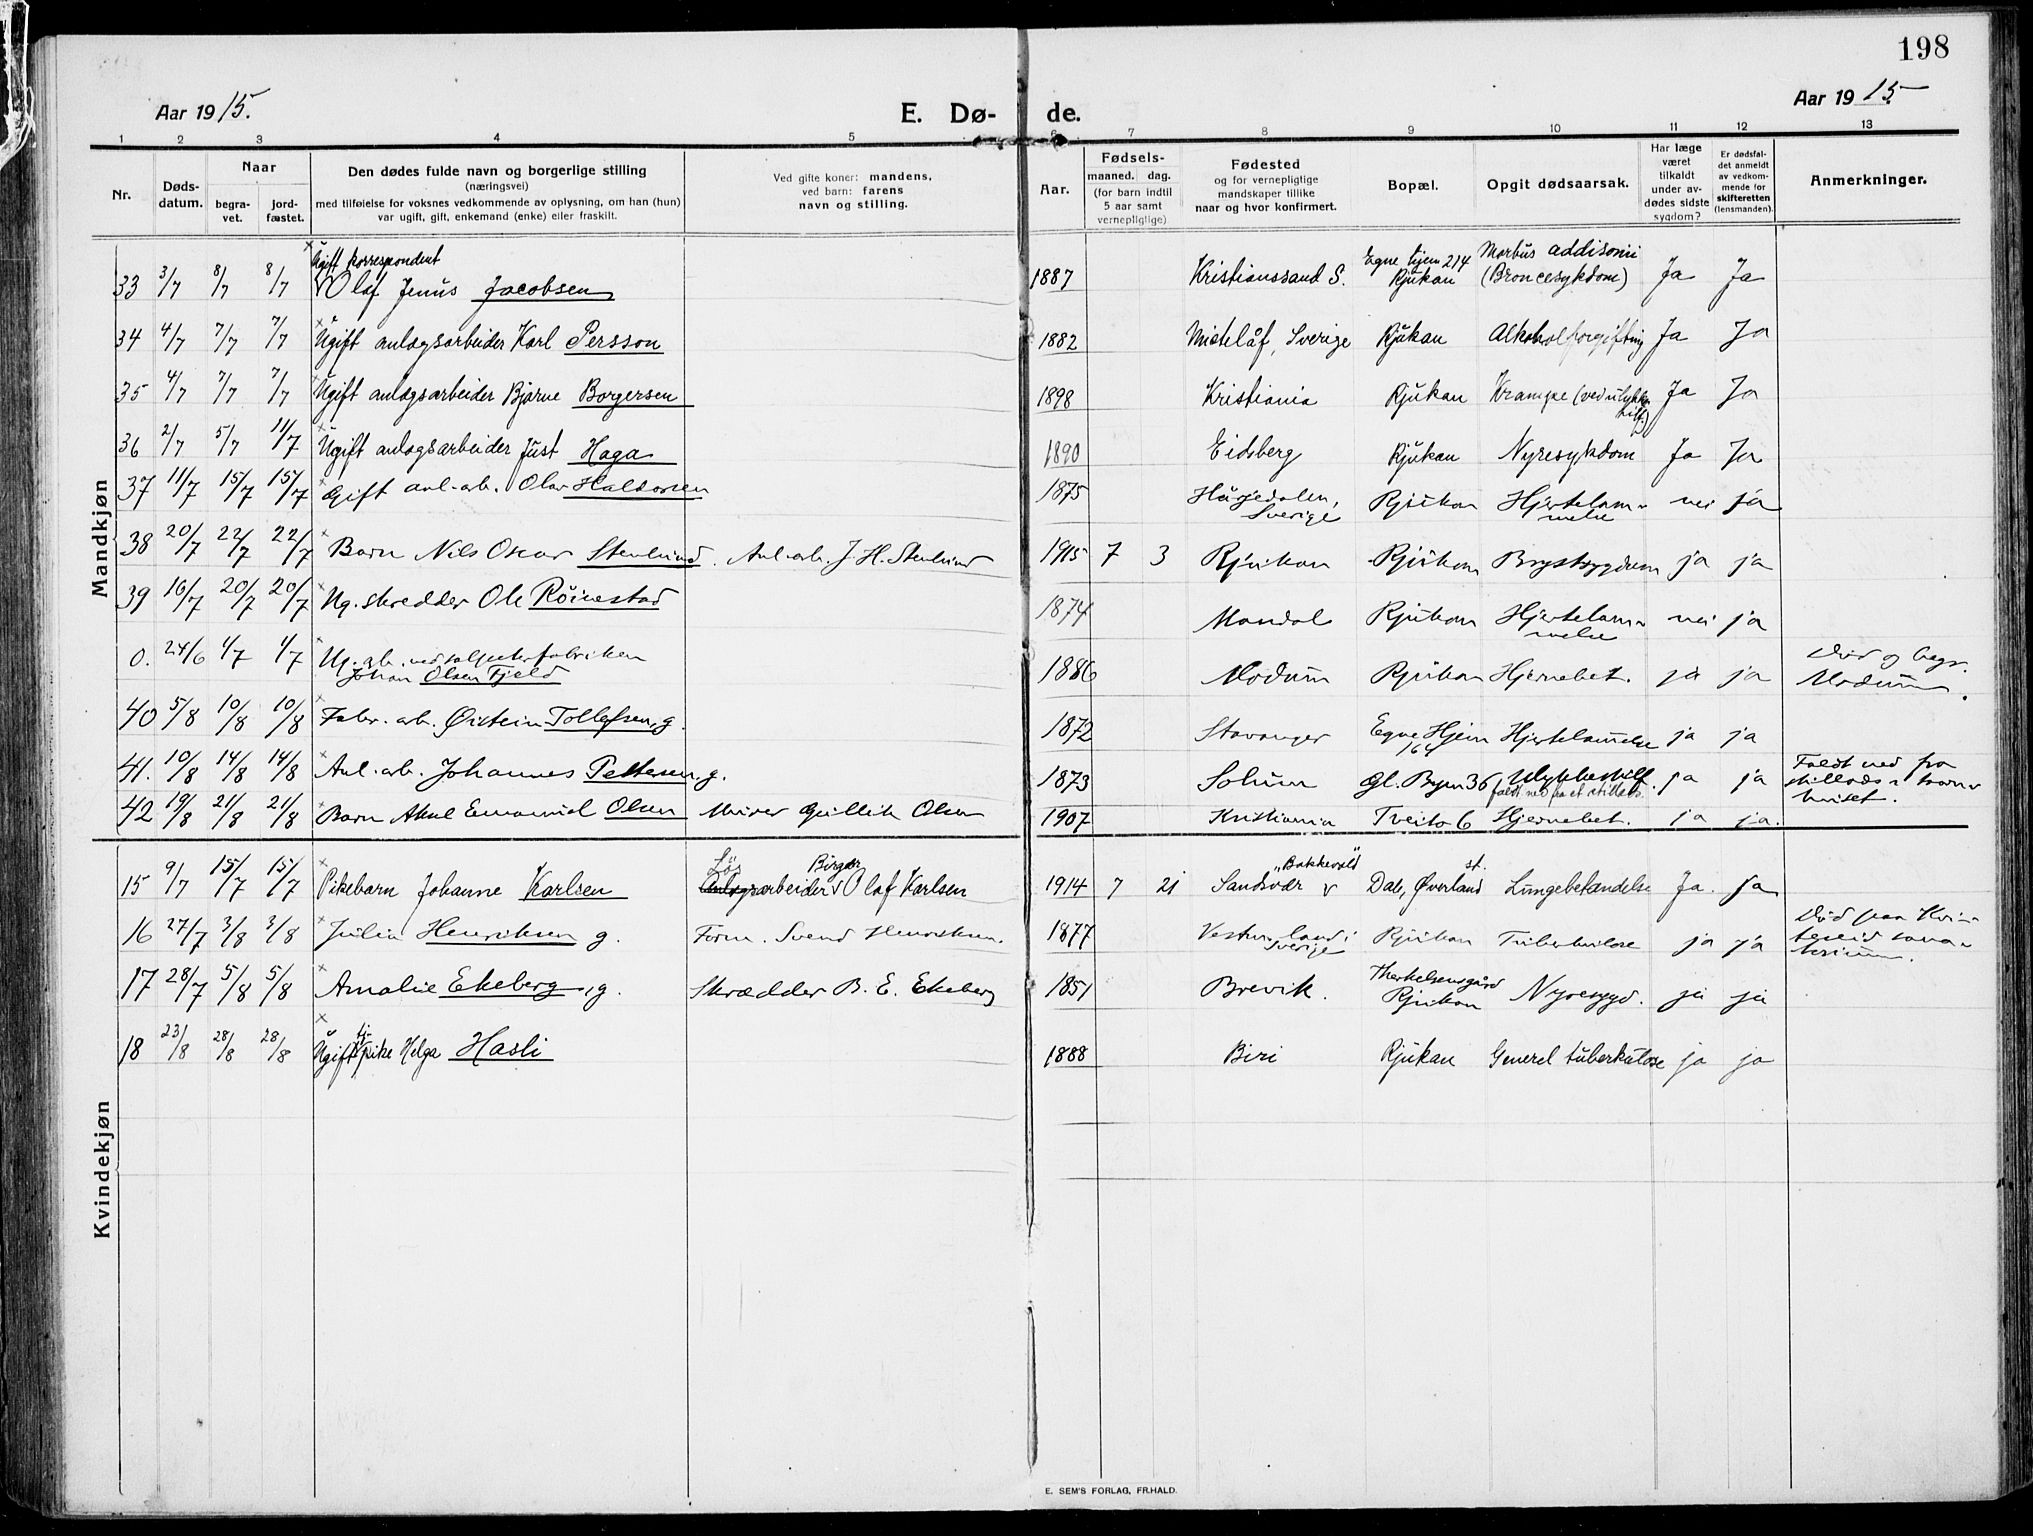 198
Aar 1915. E. Dø- de. Aar 1915.
1 2 3 4 5 6 7 8 9 10 11 12 13
Nr. Døds-datum. Naar begra-vet. jord-fæstet. Den dødes fulde navn og borgerlige stilling (næringsvei) med tilføielse for voksnes vedkommende av oplysning, om han (hun) var ugift, gift, enkemand (enke) eller fraskilt. Ved gifte koner: mandens, ved barn: farens navn og stilling. Aar. Fødsels- maaned. dag. (for barn indtil 5 aar samt vernepligtige). Fødested og for vernepligtige mandskaper tillike naar og hvor konfirmert. Bopæl. Opgit dødsaarsak. Har læge været tilkaldt under av-dødes sidste sygdom? Er dødsfal-det anmeldt av vedkom-mende for skifteretten (lensmanden). Anmerkninger.
Mandkjøn
33 3/7 8/7 8/7 Ugift korrespondent Olaf Jenus Jacobsen 1887 Kristianssand S. Egne hjem 214 Rjukan Morbus addisonii (Broncesykdom) Ja Ja
34 4/7 7/7 7/7 Ugift anlægsarbeider Karl Persson 1882 Sverige Rjukan Alkoholforgiftnig Ja Ja
35 4/7 7/7 7/7 Ugift anlægsarbeider Bjarne Borgersen 1898 Kristiania Rjukan Krampe (ved ulykkes tilf.) Ja Ja
36 2/7 5/7 11/7 Ugift anlægsarbeider Just Haga 1890 Eidsberg Rjukan Nyresykdom Ja Ja
37 11/7 15/7 15/7 Gift anl-arb. Olav Haldorsen 1875 Härjedalen, Sverige Rjukan Hjertelam-melse nei ja
38 20/7 22/7 22/7 Barn Nils Oscar Stenlund. Anl-arb. J. H. Stenlund 1915 7 3 Rjukan Rjukan Brystsygdom ja ja
39 16/7 20/7 20/7 Ug. skredder Ole Røinestad 1874 Mandal Rjukan Hjertelam-melse nei ja
0. 24/6 1/7 1/7 Ug. arb. ved salpeterfabriken Johan Olsen Fjeld 1886 Modum Rjukan Hjernebet. ja ja Död og begr. Modum.
40 5/8 10/8 10/8 Fabr. arb. Øistein Tollefsen, g. 1872 Stavanger Egne Hjem 164 Hjertelammelse ja ja
41. 10/8 14/8 14/8 Anl-arb. Johannes Pettersen, g. 1873 Solum Gl. Byen 36 Ulykkestilf. faldt ned fra et stillads. ja ja Faldt ned fra stillads i huset.
42 19/8 21/8 21/8 Barn Emanuel Olsen Murer Gullik Olsen 1907 Kristiania Tveito 6 Hjernebet. ja ja.
Kvindekjøn
15 9/7 15/7 15/7 Pikebarn Johanne Karlsen Løs Anlægsarbeider Birger Olaf Karlsen 1914 7 21 Sandsvær "Bakkevold" Dale, Øverland st. Lungebetændelse Ja. ja
16 27/7 3/8 3/8 Julia Henriksen g. Form. Svend Henriksen. 1877 Sverige Rjukan Tuberkulose ja ja Död paa Kvi-teseid sana-torium.
17 28/7 5/8 5/8 Amalie Ekeberg, g. Skrædder B. E. Ekeberg 1851 Brevik. Therkelsensgård Rjukan Nyresygd. ja ja
18 23/8 28/8 28/8 Ugift tj-pike Helga Hasli 1888 Biri Rjukan Generel tuberkulose ja ja
E. SEM'S FORLAG, FR.HALD.